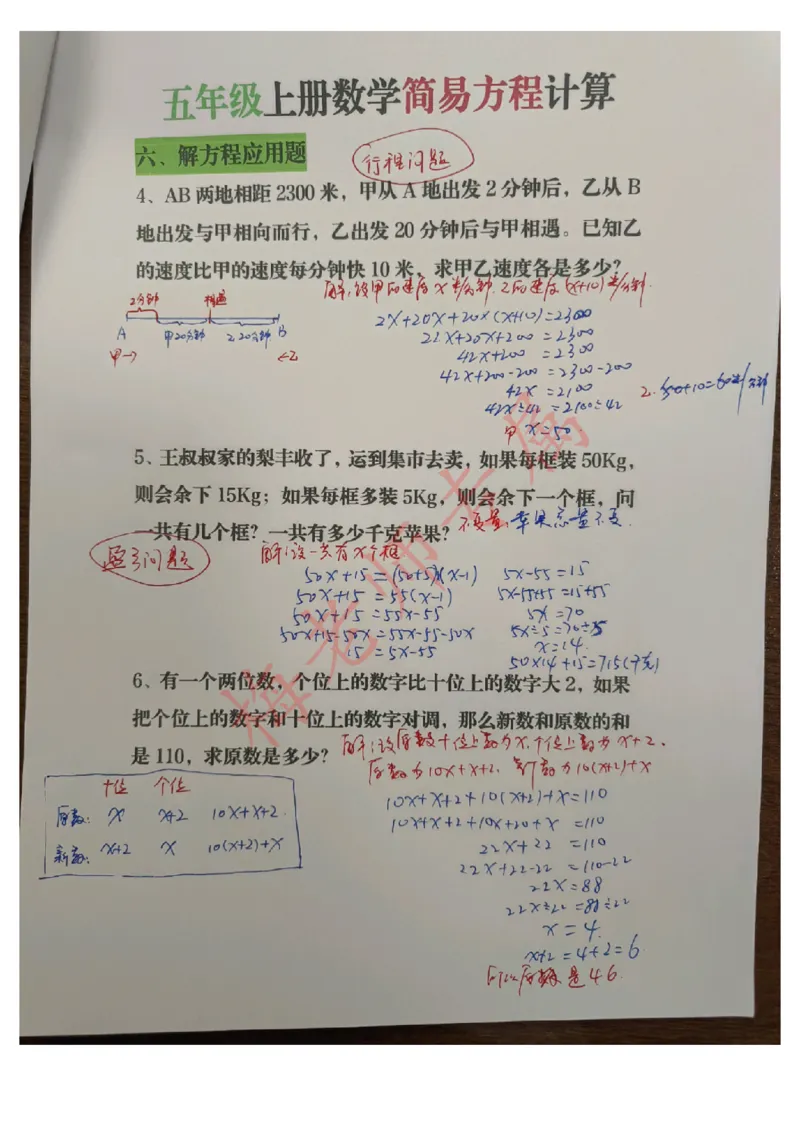 五年级上册数学简易方程计算
六、解方程应用题
行程问题
4、AB 两地相距 2300 米，甲从 A 地出发 2 分钟后，乙从 B
地出发与甲相向而行，乙出发 20 分钟后与甲相遇。已知乙
的速度比甲的速度每分钟快 10 米，求甲乙速度各是多少？
解：设甲的速度X米/分钟，乙的速度(X+10)米/分钟.
2分钟 相遇
A 甲20分钟 乙20分钟 B
甲→ ←乙
2X+20X+20×(X+10)=2300
22X+20X+200=2300
42X+200=2300
42X+200-200=2300-200
42X=2100
42X÷42=2100÷42
甲 X=50.
乙.50+10=60米/分钟
5、王叔叔家的梨丰收了，运到集市去卖，如果每框装 50Kg，
则会余下 15Kg；如果每框多装 5Kg，则会余下一个框，问
一共有几个框？一共有多少千克苹果？
不变量:苹果总量不变.
盈亏问题
解:设一共有X个框
50X+15=(50+5)(X-1)
50X+15=55(X-1)
50X+15=55X-55
50X+15-50X=55X-55-50X
15=5X-55
5X-55=15
5X-55+55=15+55
5X=70
5X÷5=70÷5
X=14.
50×14+15=715(千克)
6、有一个两位数，个位上的数字比十位上的数字大 2，如果
把个位上的数字和十位上的数字对调，那么新数和原数的和
是 110，求原数是多少？
解:设原数十位上数为X,个位上数为X+2.
原数为10X+X+2,新数为10(X+2)+X
十位 个位
原数: X X+2 10X+X+2.
新数: X+2 X 10(X+2)+X
10X+X+2+10(X+2)+X=110
10X+X+2+10X+20+X=110
22X+22=110
22X+22-22=110-22
22X=88
22X÷22=88÷22
X=4.
X+2=4+2=6.
所以原数是46.
梅老师专属